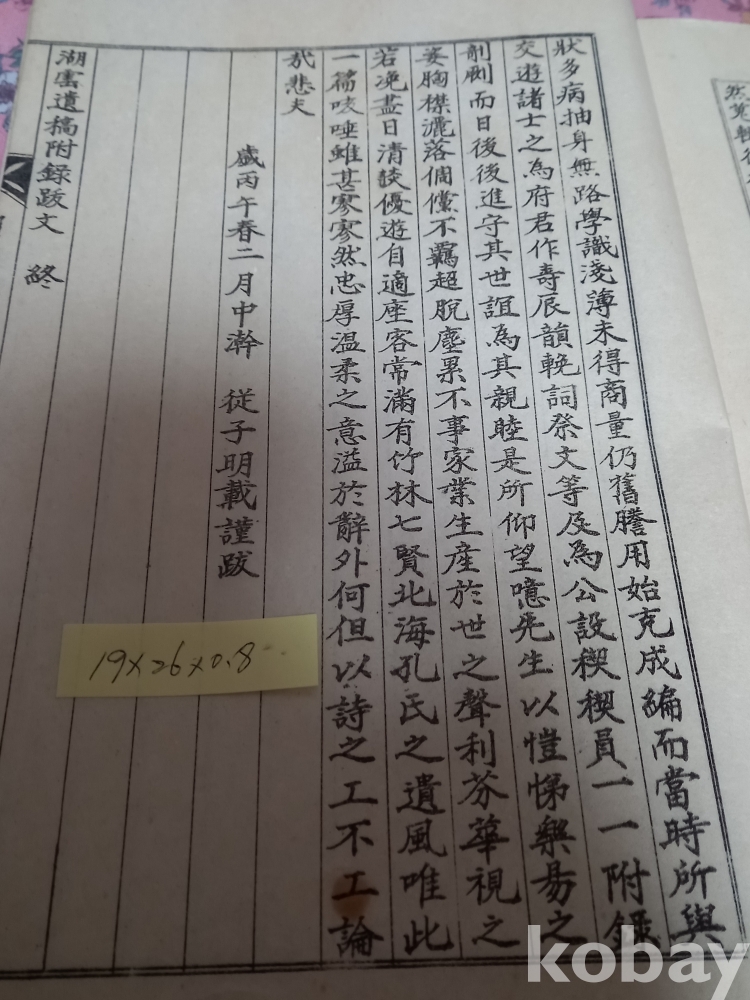 狀多病抽身無路學識淺薄未得商量仍舊謄用始克成編而當時所與
交遊諸士之為府君作壽辰韻輓詞祭文等及為公設稧稧員一一附錄
剞劂而日後後進守其世誼為其親睦是所仰望噫先生以愷悌樂易之
姿胸襟灑落倜儻不羈超脫塵累不事家業生產於世之聲利芬華視之
若浼盡日清談優遊自適座客常滿有竹林七賢北海孔氏之遺風唯此
一篇咳唾雖甚寥寥然忠厚温柔之意溢於辭外何但以詩之工不工論
哉悲夫
歲丙午春二月中澣 從子明載謹跋
湖雲遺稿附錄跋文 終
19×26×0.8
kobay